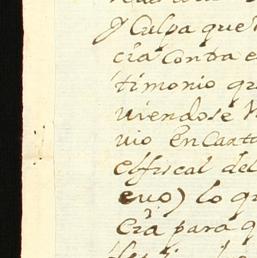 y Culpa que
cia Conta e
timonio qu
viendose
vio En Caat
el fiscal del
evo) lo q
Cia para q